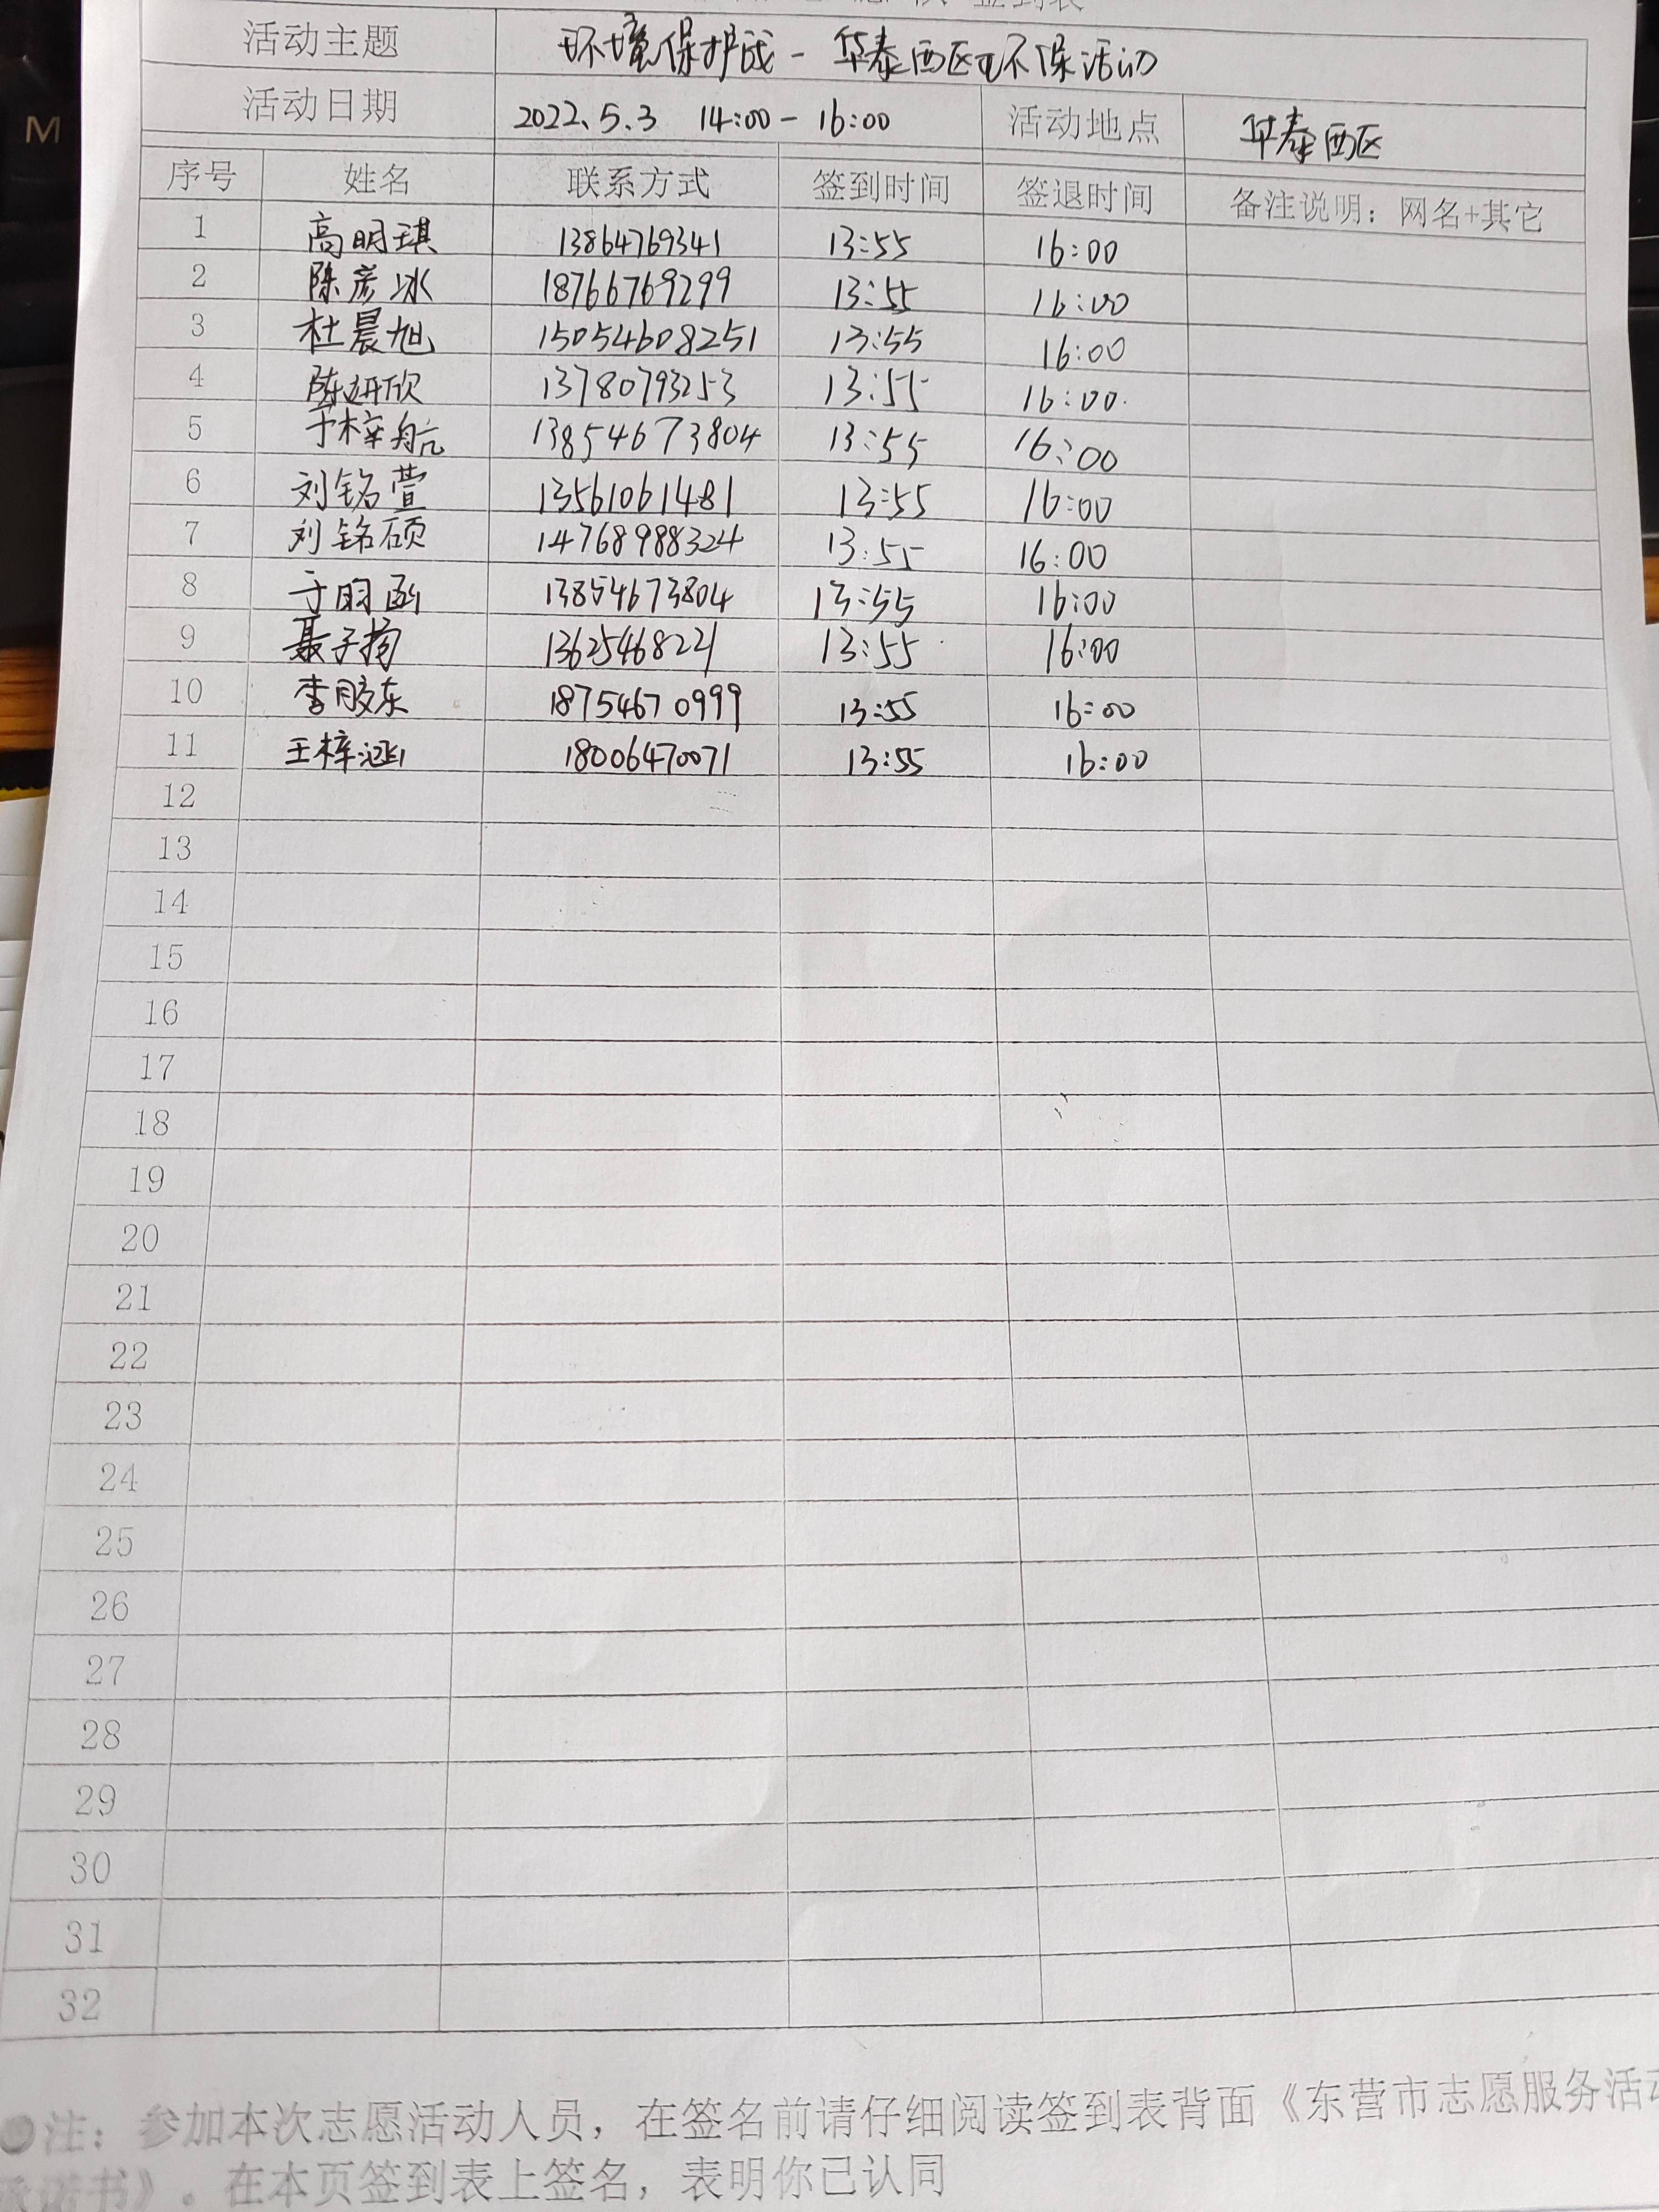 签到表
活动主题 环境保护战-华泰西区环保活动
活动日期 2022.5.3 14:00-16:00 活动地点 华泰西区
序号 姓名 联系方式 签到时间 签退时间 备注说明：网名+其它
1 高明琪 13864769341 13:55 16:00
2 陈彦冰 18766769299 13:55 16:00
3 杜晨旭 15054608251 13:55 16:00
4 陈妍欣 13780793253 13:55 16:00
5 于梓航 13854673804 13:55 16:00
6 刘铭萱 13561061481 13:55 16:00
7 刘铭硕 14768988324 13:55 16:00
8 于函 13854673804 13:55 16:00
9 聂子 13625468221 13:55 16:00
10 李胶东 18754670999 13:55 16:00
11 王梓涵 18006470071 13:55 16:00
12
13
14
15
16
17
18
19
20
21
22
23
24
25
26
27
28
29
30
31
32
注：参加本次志愿活动人员，在签名前请仔细阅读签到表背面《东营市志愿服务活动
承诺书》。在本页签到表上签名，表明你已认同
M